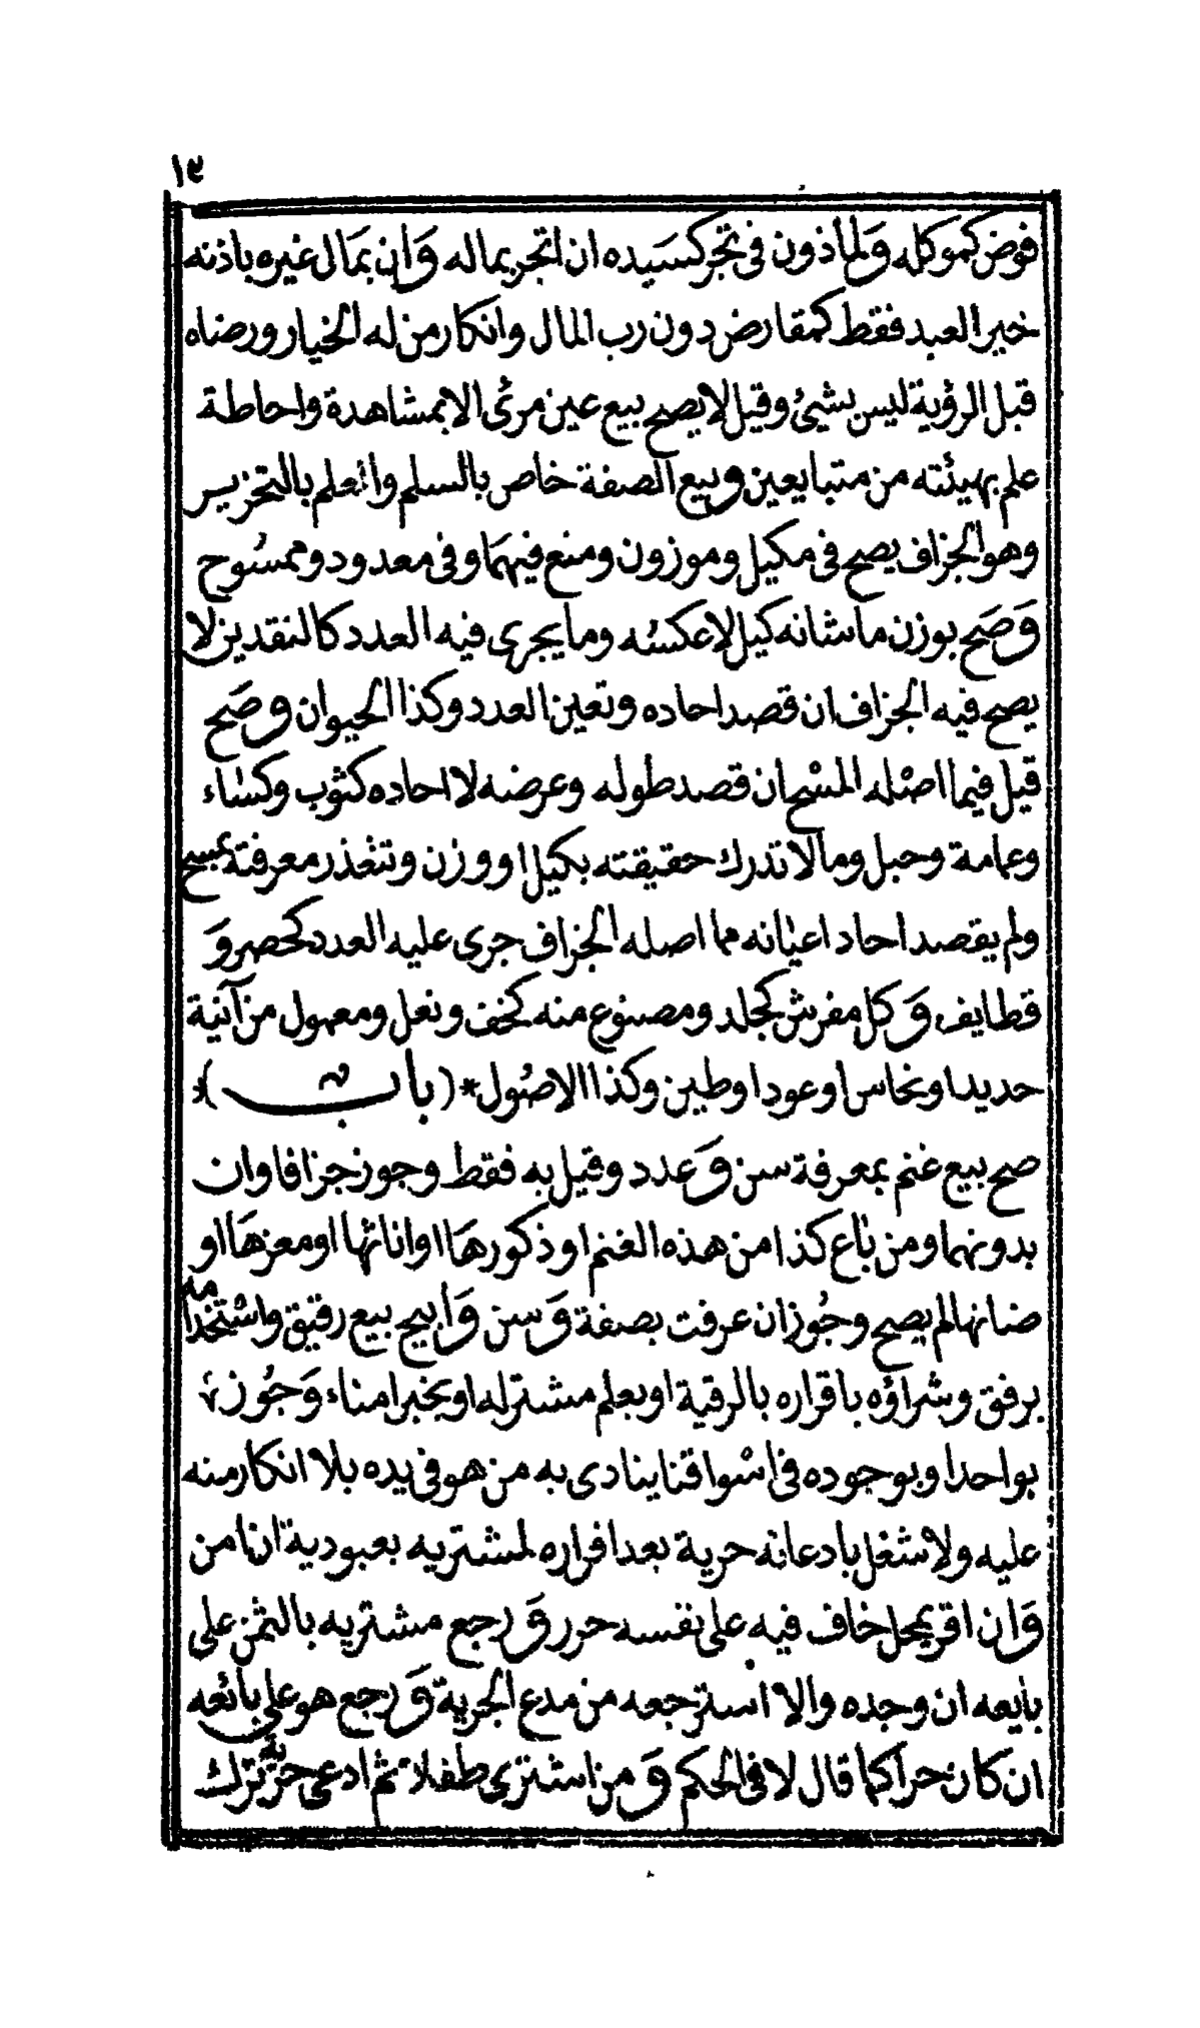 ١٣
فوض كموكله وَلماذون فى تجر كسَيده ان اتجر بماله وَان بمَال غيره باذنه
خير العبد فقط كمقارض دون رب المال وانكار من له الخيار ورضاه
قبل الرؤية ليس بشيئ وقيل لا يصح بيع عين مرئى الا بمشاهدة واحاطة
علم بهيئته من متبايعين وبيع الصفة خاص بالسلم والعلم بالتحزير
وهو الجزاف يصح فى مكيل وموزون ومنع فيهمَا وفى معدود وممسُوح
وَصَح بوزن ما شانه كيل لا عكسُه وما يجرى فيه العدد كالنقدين لا
يصح فيه الجزاف ان قصد احاده وتعين العدد وكذا الحيوان وصَح
قيل فيما اصْله المسْح ان قصد طوله وعرضه لا احاده كثوب وكسَاء
وعمامة وحبل وما لا تدرك حقيقته بكيل او وزن وتتعذر معرفته بمسح
ولم يقصد احاد اعيَانه مما اصله الجزاف جرى عليه العدد كحصر وَ
قطايف وَكل مفرش كجلد ومصنوع منه كخف ونعل ومعمول من آنية
حديد او نحاس او عود او طين وكذا الاصُول * ( باب ) *
صح بيع غنم بمعرفة سن وَعدد وقيل به فقط وجوز جزافا وان
بدونهما ومن بَاع كذا من هذه الغنم او ذكورهَا او اناثها او معزهَا او
ضانها لم يصح وجُوز ان عرفت بصفة وَسن وَابيح بيع رقيق واسْتخدامه
برفق وشراؤه باقراره بالرقية او بعلم مشتر له او بخبر امناء وَجُوز
بواحد او بوجوده فى اسْواقنا ينادى به من هو فى يده بلا انكار منه
عليه ولا شغل بادعائه حرية بعد اقراره لمشتريه بعبودية ان امن
وَان اقر بمحل خاف فيه على نفسه حرر وَرجع مشتريه بالثمن على
بايعه ان وجده والا استرجعه من مدع الحرية وَرجع هو على بائعه
ان كان حرا كما قال لا فى الحكم وَمن اشترى طفلا ثم ادعى حرية ترك